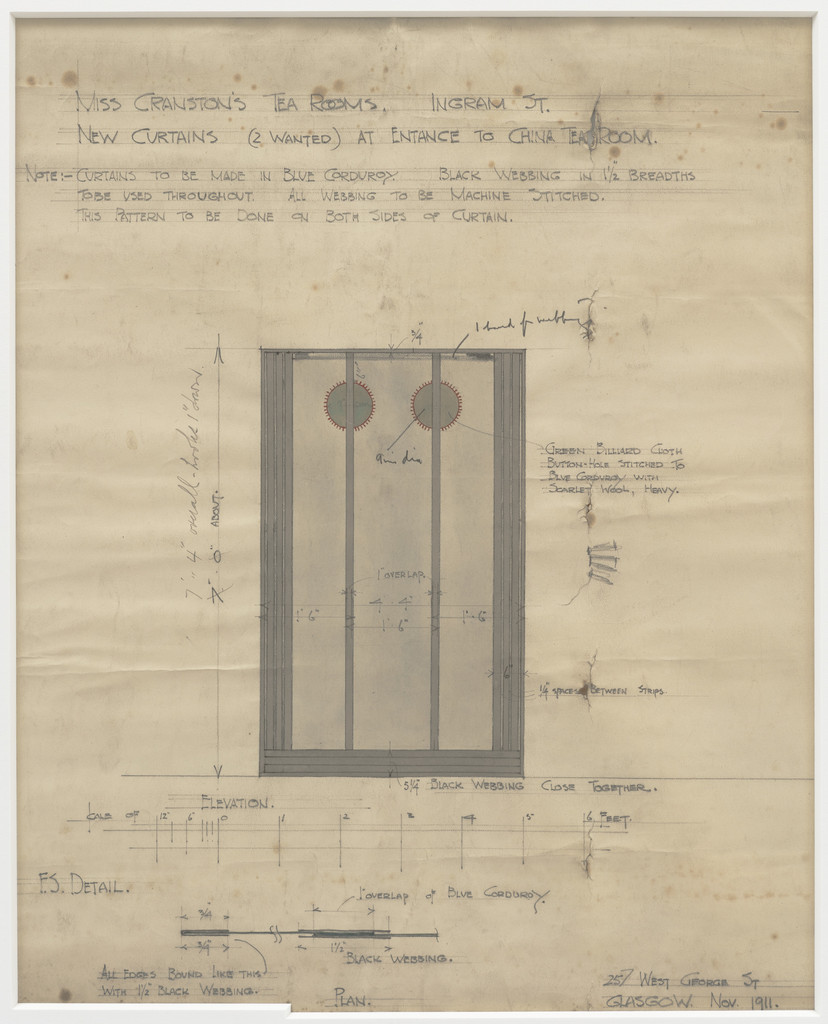 MISS CRANSTON'S TEA ROOMS. INGRAM ST.
NEW CURTAINS (2 WANTED) AT ENTANCE TO CHINA TEA ROOM.
NOTE:- CURTAINS TO BE MADE IN BLUE CORDUROY. BLACK WEBBING IN 1½" BREADTHS
TOBE USED THROUGHOUT. ALL WEBBING TO BE MACHINE STITCHED.
THIS PATTERN TO BE DONE ON BOTH SIDES OF CURTAIN.
¾"
7'-4" overall
7'-0" ABOUT.
9in dia
GREEN BILLIARD CLOTH
BUTTON-HOLE STITCHED TO
BLUE CORDUROY WITH
SCARLET WOOL, HEAVY.
1" OVERLAP.
4'-4"
1'-6" 1'-6" 1'-6"
6"
¼" SPACES BETWEEN STRIPS
5¼" BLACK WEBBING CLOSE TOGETHER.
ELEVATION.
OF 12" 6" 0 1 2 3 4 5 6 FEET.
F.S. DETAIL.
1" OVERLAP OF BLUE CORDUROY.
¾"
¾" 1½"
BLACK WEBBING.
ALL EDGES BOUND LIKE THIS
WITH 1½" BLACK WEBBING.
PLAN.
257 WEST GEORGE ST
GLASGOW. NOV. 1911.